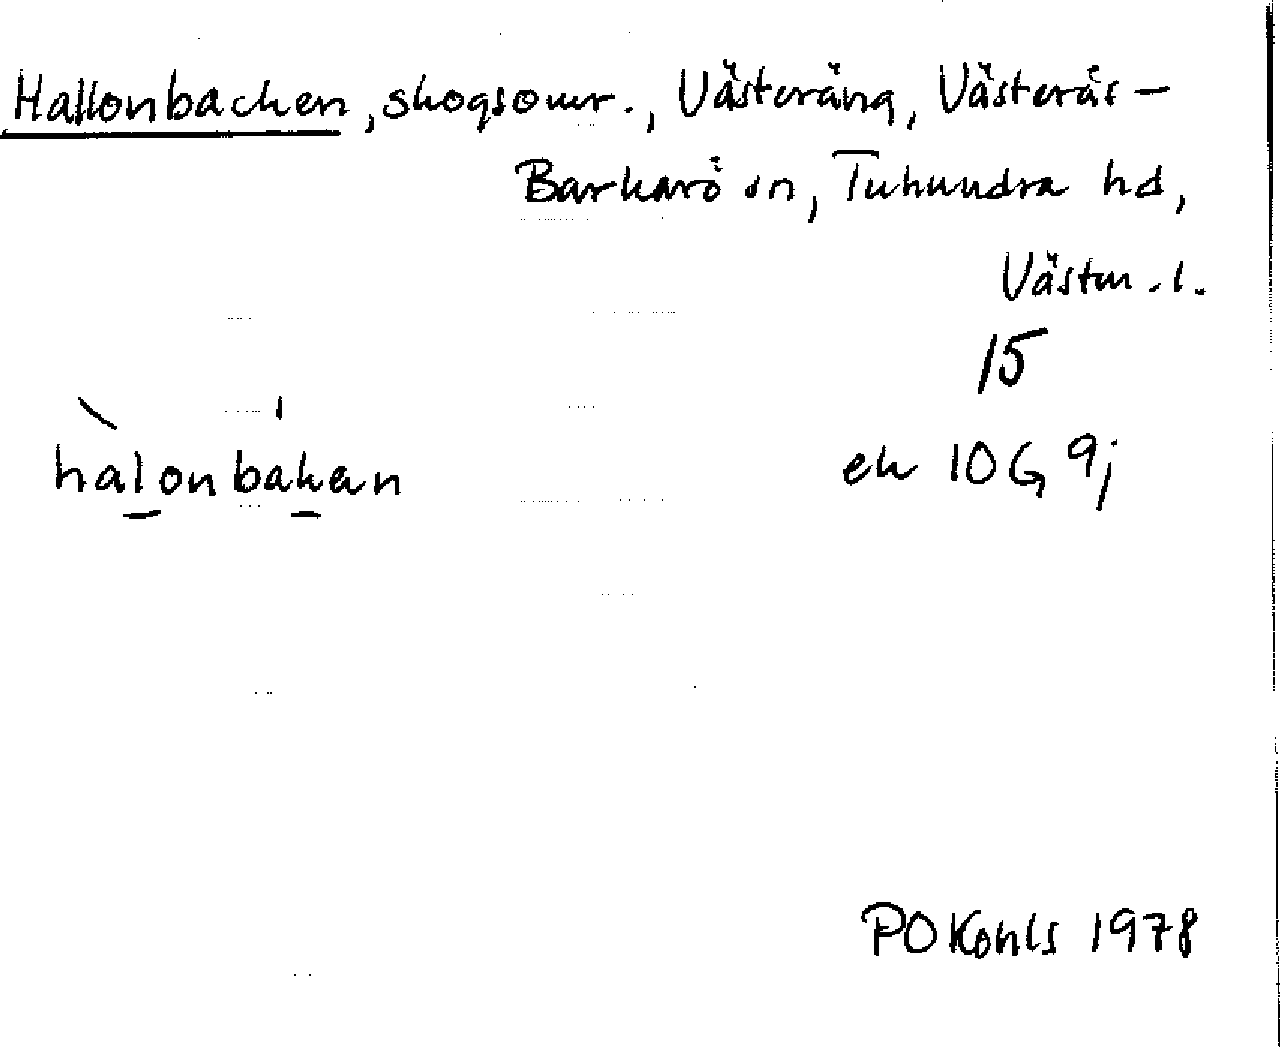 Hallonbacken, skogsomr., Västeräng, Västerås-
Barkarö sn, Tuhundra hd,
Västm. l.
15
hàl̲onbák̲an
ek 10G 9j
PO Kohls 1978